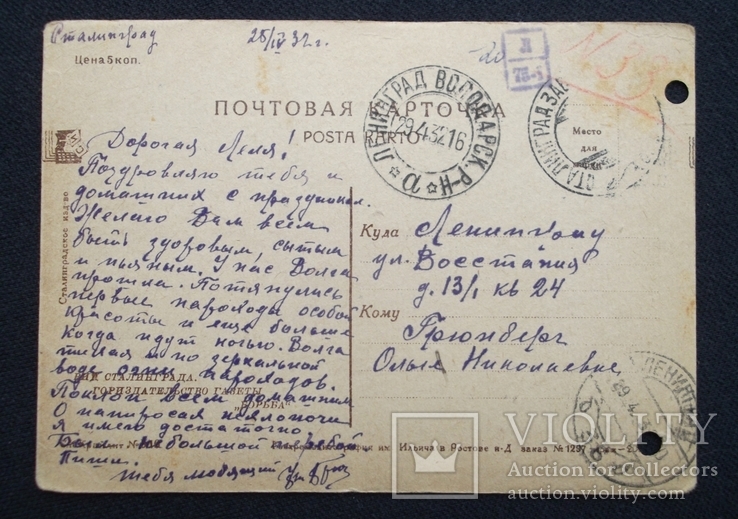 Сталинград 25/IV 32 г.
Цена 5 коп.
Л
ПОЧТОВАЯ КАРТОЧКА
POSTA KARTO
ЛЕНИНГРАД ВОЛОДАРСК. Р-Н
29.4.32.16
СТАЛИНГРАД
Место
для
Дорогая Леля!
Поздравляю тебя и
домашних с праздником.
Желаю Вам всем
быть здоровым, сытым
и пьяным. У нас Волга
прошла. Потянулись
первые пароходы особой
красоты и еще больше
когда идут ночью. Волга
тихая и по зеркальной
воде огни пароходов.
Поклон всем домашним
О папиросах не хлопочи
я имею достаточно.
Вам небольшой
Пиши.
тебя любящий
Сталинградское изд-во
ВИД СТАЛИНГРАДА.
ГОРИЗДАТЕЛЬСТВО ГАЗЕТЫ
"БОРЬБА"
им. Ильича в Ростове н-Д заказ № 1297
Куда Ленинград
ул. Восстания
д. 13/1 кв 24
Кому
Грюнберг
Ольге Николаевне
ЛЕНИНГРАД
29.4
VIOLITY
Auction for Collectors
auction.violity.com